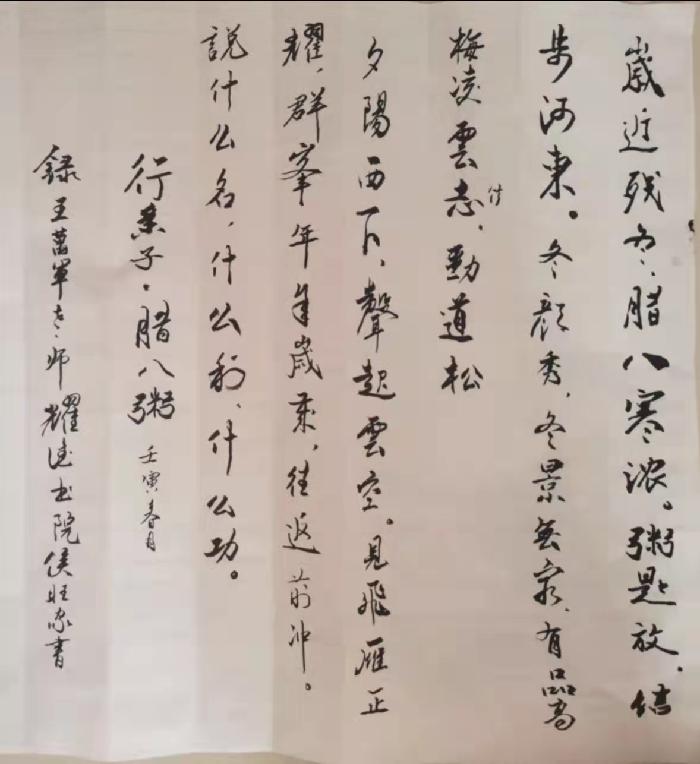 歲近残冬、腊八寒浓。粥匙放、信
步河東。冬颜秀，冬景無穷、有品高
梅凌雲志、付勁道松
夕陽西下、聲起雲空。見飛雁正
耀，群峯年年歲策，往返前冲。
説什么名，什么利、什么功。
行香子·腊八粥 壬寅春月
録王 軍老师 耀 书院侯旺家書